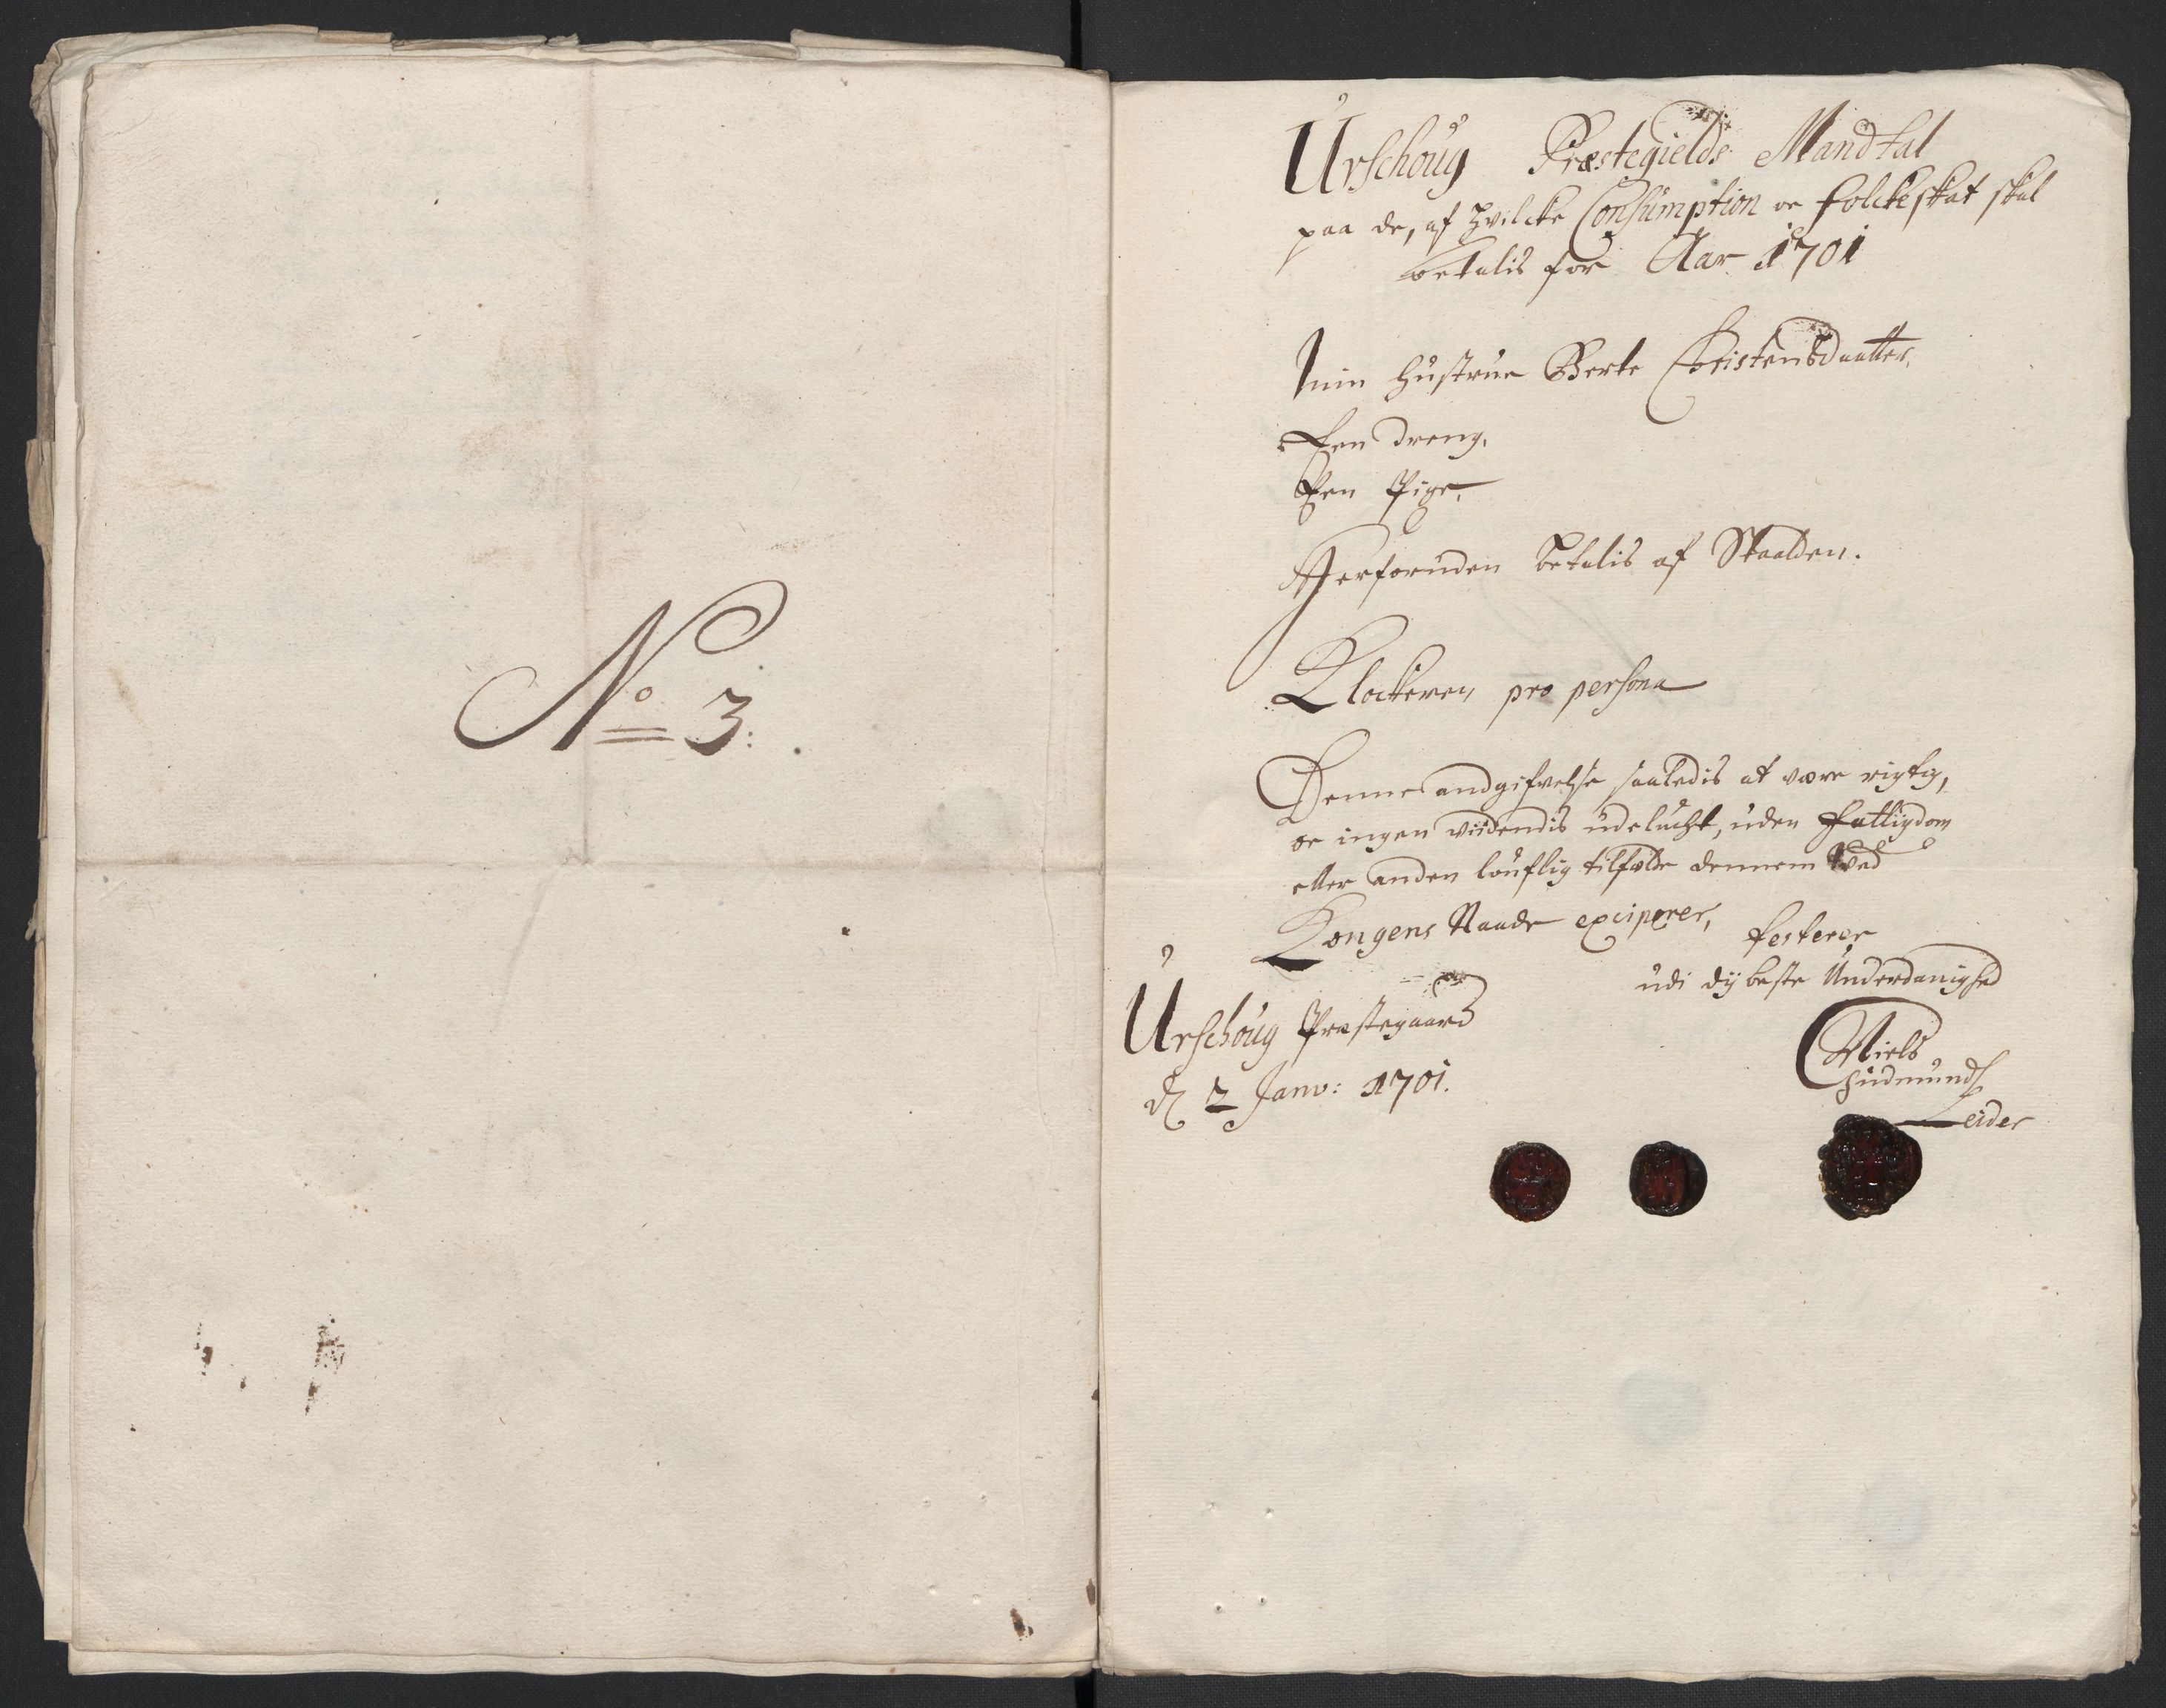 No 3:
Urschoug Præstegields Mandtal
paa de, af hvilcke Consumption oc folckeskat skal
betalis for Aar 1701
min hustrue Berte Christensdaatter,
Een dreng,
Een Pige,
Herforuden betalis af
Klockeren pro persona
Denne andgifvelse saaledis at være rigtig,
oc ingen viidendis udelucht, uden fattigdom
eller anden louflig tilfælde dennem ved
Kongens Naade exciperer, testerer
udi dybeste Underdanighed
Urschoug Præstegaard
d 2 Janv: 1701.
Niels
Gudmunds
Leider